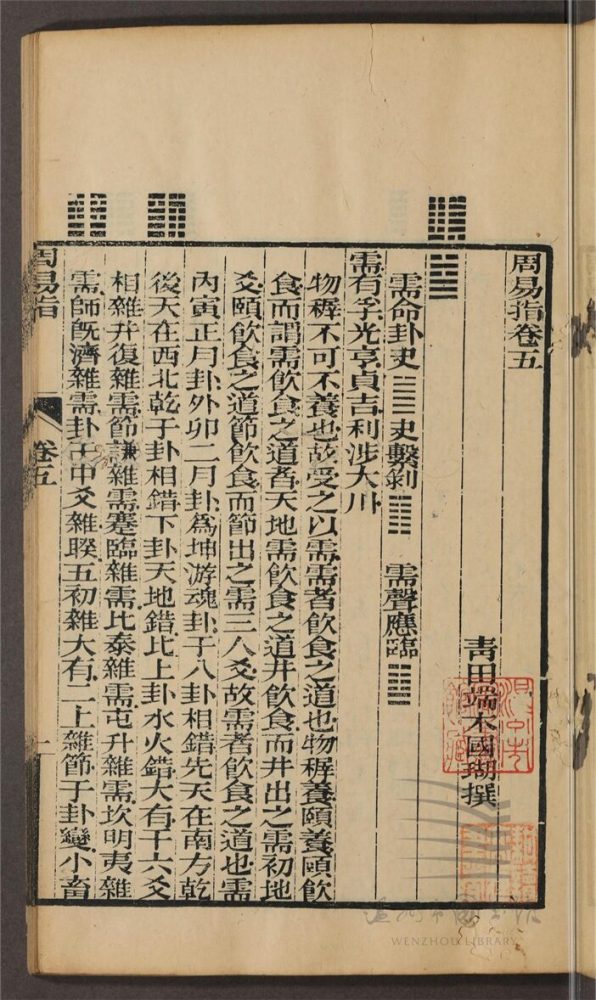 周易指卷五
青田端木國瑚撰
需命卦史 史繫剝 需聲應臨
需有孚光亨貞吉利涉大川
物穉不可不養也故受之以需需者飲食之道也物穉養頤養頤飲
食而謂需飲食之道者天地需飲食之道井飲食而井出之需初地
爻頤飲食之道節飲食而節出之需三人爻故需者飲食之道也需
內寅正月卦外卯二月卦爲坤游魂卦于八卦相錯先天在南方乾
後天在西北乾于卦相錯下卦天地錯比上卦水火錯大有于六爻
相雜井復雜需節謙雜需蹇臨雜需比泰雜需屯升雜需坎明夷雜
需師旣濟雜需卦中爻雜睽五初雜大有二上雜節于卦變小畜
周易指
卷五
一
WENZHOU LIBRARY